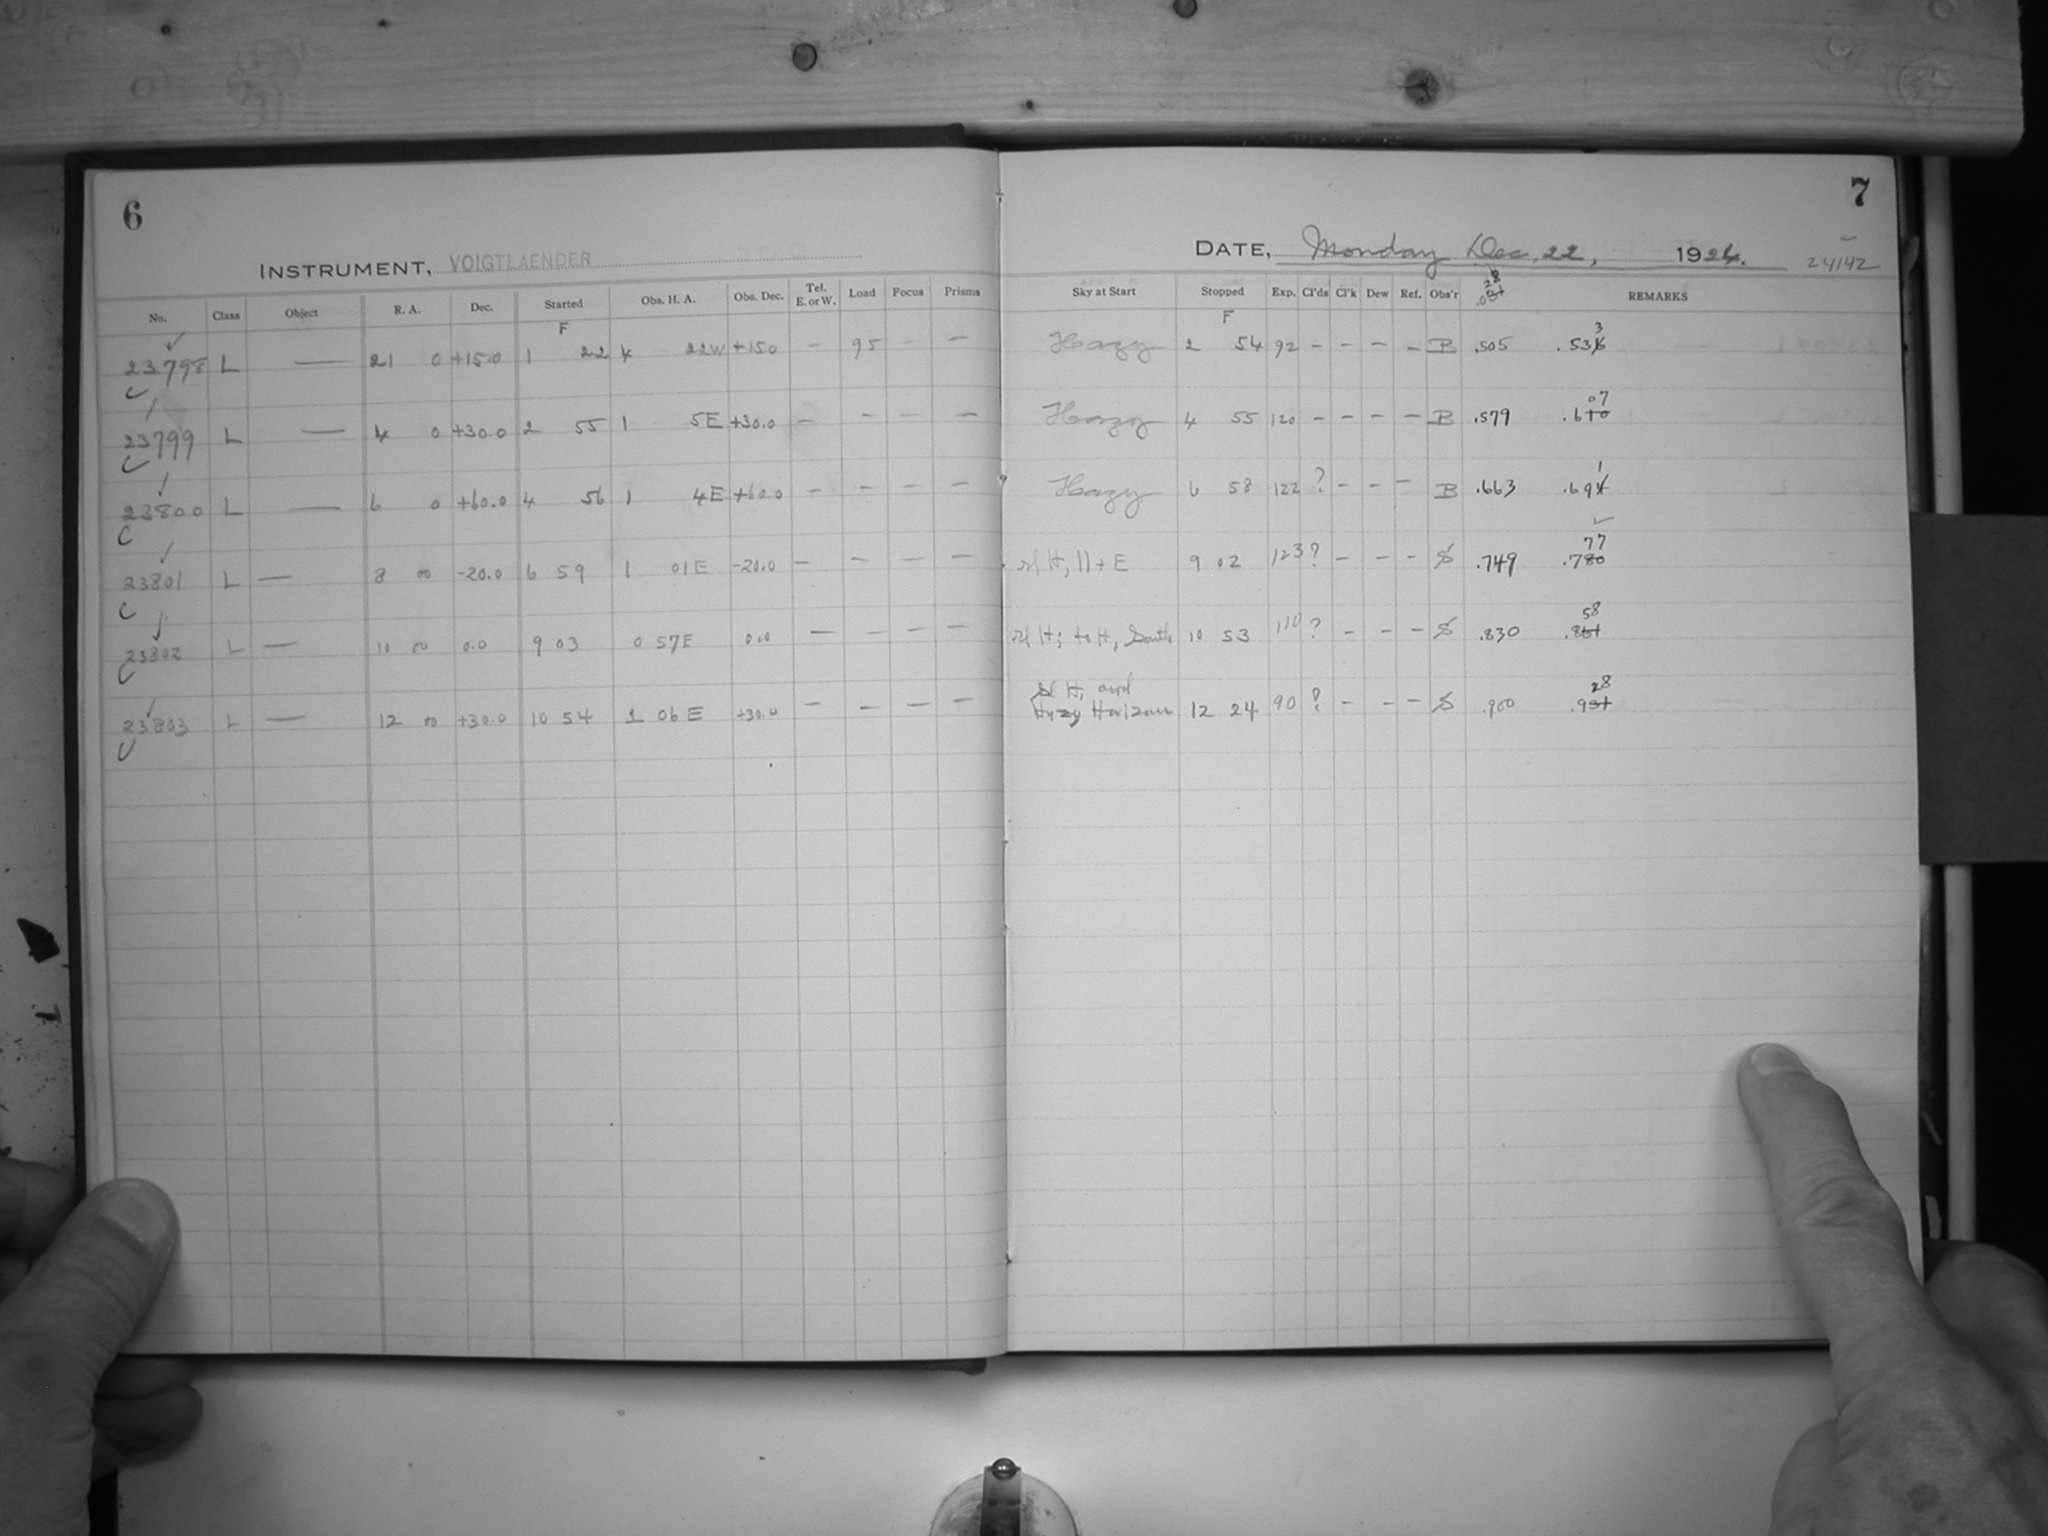 6
INSTRUMENT, VOIGTLAENDER
No. Class Object R. A. Dec. Started Obs. H. A. Obs. Dec. Tel. E. or W. Load Focus Prisms
F
23798 L — 21 0 +15.0 1 22 4 22W +15.0 — 95 — —
23799 L — 4 0 +30.0 2 55 1 5E +30.0 — — — —
23800 L — 6 0 +60.0 4 56 1 4E +60.0 — — — —
23801 L — 8 00 -20.0 6 59 1 01E -20.0 — — — —
23802 L — 10 00 0.0 9 03 0 57E 0.0 — — — —
23803 L — 12 00 +30.0 10 54 1 06E +30.0 — — — —
7
DATE, Monday Dec. 22, 1924. 24142
Sky at Start Stopped Exp. Cl'ds Cl'k Dew Ref. Obs'r REMARKS
28
F
3
Hazy 2 54 92 — — — — B .505 .536
07
Hazy 4 55 120 — — — — B .579 .610
1
Hazy 6 58 122 ? — — — B .663 .694
77
sl H, 11+ E 9 02 123 ? — — — S .749 .780
58
sl H; to H, South 10 53 110 ? — — — S .830 .861
28
sl H, and
Hazy Horizon 12 24 90 ? — — — S .900 .931